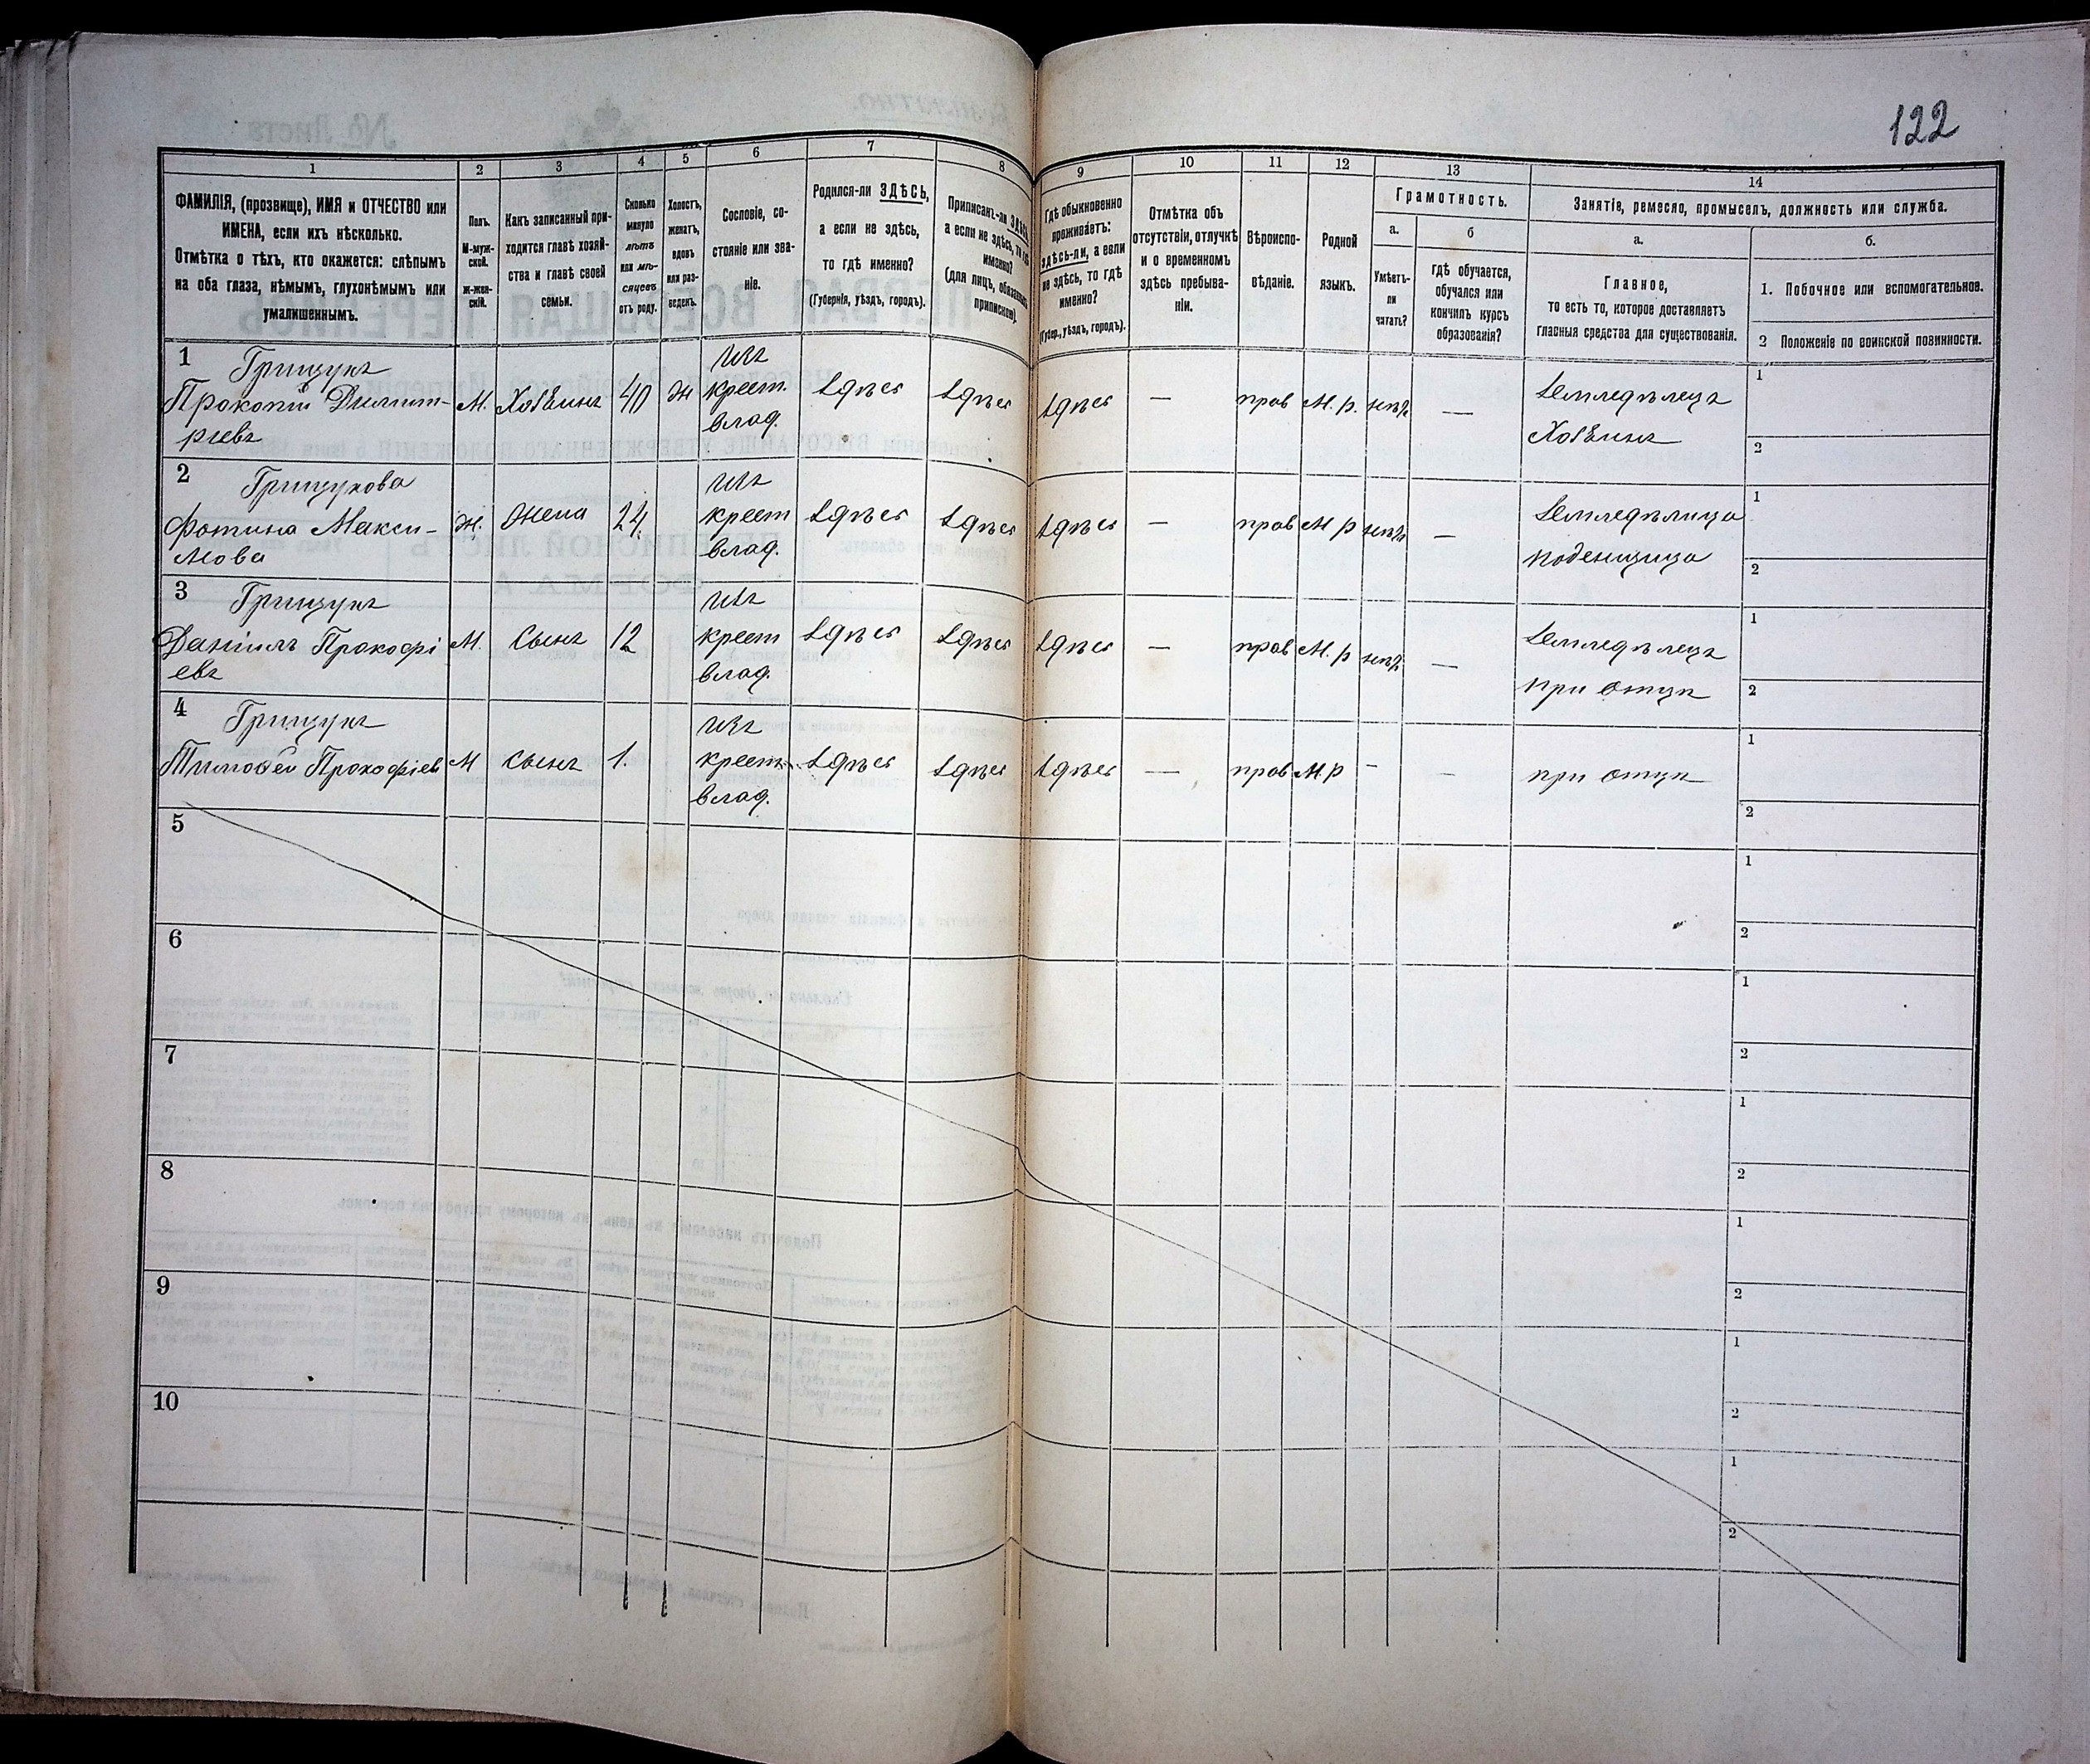 122
1
2
3
4
5
6
7
8
9
10
11
12
13
14
ФАМИЛІЯ, (прозвище), ИМЯ и ОТЧЕСТВО или
ИМЕНА, если ихъ нѣсколько.
Отмѣтка о тѣхъ, кто окажется: слѣпымъ
на оба глаза, нѣмымъ, глухонѣмымъ или
умалишеннымъ.
Полъ.
М-муж-
ской.
Ж-жен-
скій.
Какъ записанный при-
ходится главѣ хозяй-
ства и главѣ своей
семьи.
Сколько
минуло
лѣтъ
или мѣ-
сяцевъ
отъ роду.
Холостъ,
женатъ,
вдовъ
или раз-
веденъ.
Сословіе, со-
стояніе или зва-
ніе.
Родился-ли ЗДѢСЬ,
а если не здѣсь,
то гдѣ именно?
(Губернія, уѣздъ, городъ).
Приписанъ-ли ЗДѢСЬ,
а если не здѣсь, то гдѣ
именно?
(для лицъ, обязанныхъ
припискою).
Гдѣ обыкновенно
проживаетъ:
здѣсь-ли, а если
не здѣсь, то гдѣ
именно?
(Губер., уѣздъ, городъ).
Отмѣтка объ
отсутствіи, отлучкѣ
и о временномъ
здѣсь пребыва-
ніи.
Вѣроиспо-
вѣданіе.
Родной
языкъ.
Грамотность.
а.
б
Умѣетъ-
ли
читать?
Гдѣ обучается,
обучался или
кончилъ курсъ
образованія?
Занятіе, ремесло, промыселъ, должность или служба.
а.
б.
Главное,
то есть то, которое доставляетъ
главныя средства для существованія.
1. Побочное или вспомогательное.
2 Положеніе по воинской повинности.
1 Грищукъ
Прокопій Димит-
ріевъ
М. Хозяинъ 40 ж
изъ
крест.
влад.
здѣсь здѣсь здѣсь — прав М. р. нѣтъ —
Земледѣлецъ
Хозяинъ
1
2
2 Грищукова
Фотина Макси-
мова
ж. жена 24
изъ
крест
влад.
здѣсь здѣсь здѣсь — прав М р нѣтъ —
Земледѣлица
поденщица
1
2
3 Грищукъ
Даніилъ Прокофі
евъ
М. Сынъ 12
изъ
крест
влад.
здѣсь здѣсь здѣсь — прав М. р нѣтъ —
Земледѣлецъ
при отцѣ
1
2
4 Грищукъ
Тимоѳей Прокофіев
М сынъ 1.
изъ
крест.
влад.
здѣсь здѣсь здѣсь — прав М р - -
при отцѣ
1
2
5
1
2
6
1
2
7
1
2
8
1
2
9
1
2
10
1
2